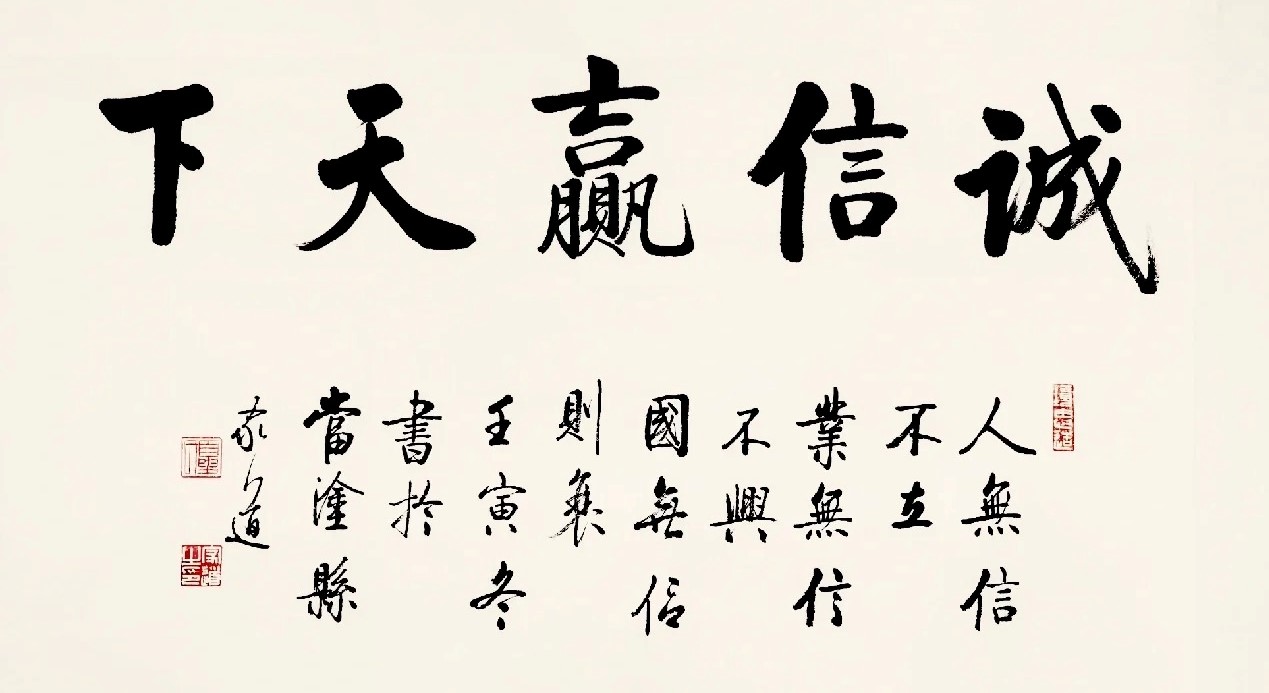 誠信贏天下
人無信
不立
業無信
不興
國無信
則衰
壬寅冬
書於
當塗縣
家道